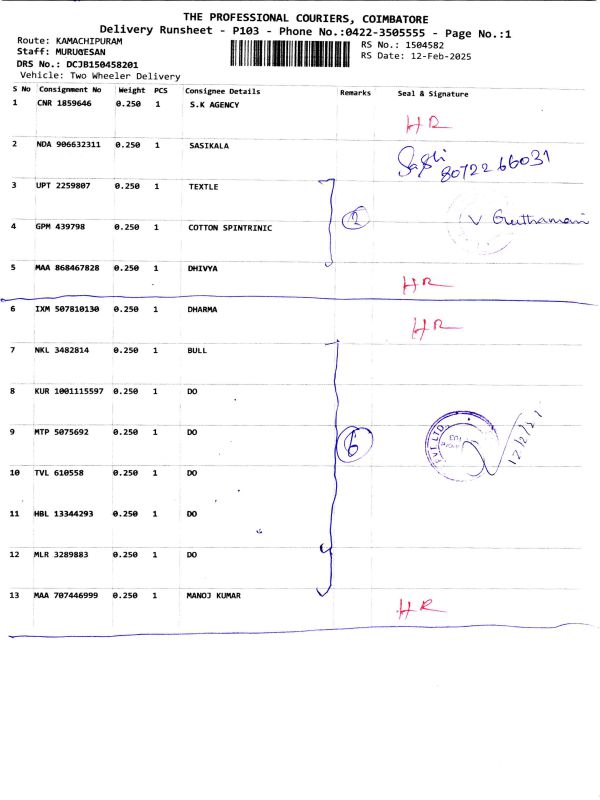 THE PROFESSIONAL COURIERS, COIMBATORE
Delivery Runsheet - P103 - Phone No.:0422-3505555 - Page No.:1
Route: KAMACHIPURAM RS No.: 1504582
Staff: MURUGESAN RS Date: 12-Feb-2025
DRS No.: DCJB150458201
Vehicle: Two Wheeler Delivery
S No Consignment No Weight PCS Consignee Details Remarks Seal & Signature
1 CNR 1859646 0.250 1 S.K AGENCY
HR
2 NDA 906632311 0.250 1 SASIKALA
Sasi
80722 66031
3 UPT 2259807 0.250 1 TEXTLE
2 V Geethamani
4 GPM 439798 0.250 1 COTTON SPINTRINIC
5 MAA 868467828 0.250 1 DHIVYA HR
6 IXM 507810130 0.250 1 DHARMA HR
7 NKL 3482814 0.250 1 BULL
8 KUR 1001115597 0.250 1 DO
9 MTP 5075692 0.250 1 DO 6 PVT LTD
10 TVL 610558 0.250 1 DO
11 HBL 13344293 0.250 1 DO
12 MLR 3289883 0.250 1 DO
13 MAA 707446999 0.250 1 MANOJ KUMAR HR